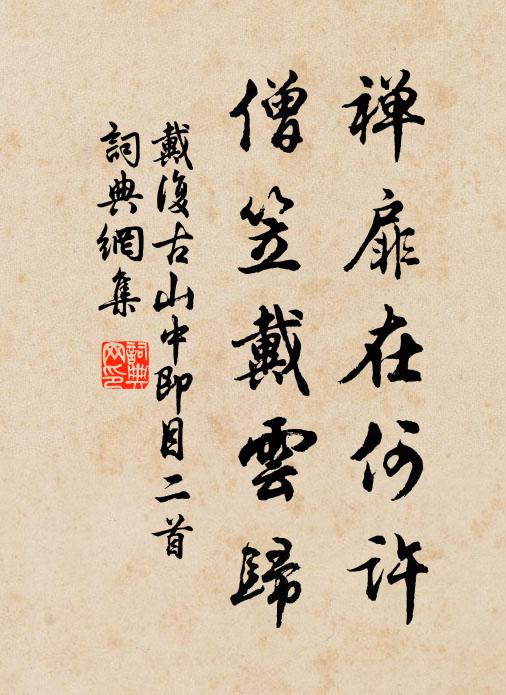 禅扉在何許
僧笠戴雲歸
戴復古山中即目二首
詞典網集
詞典網印